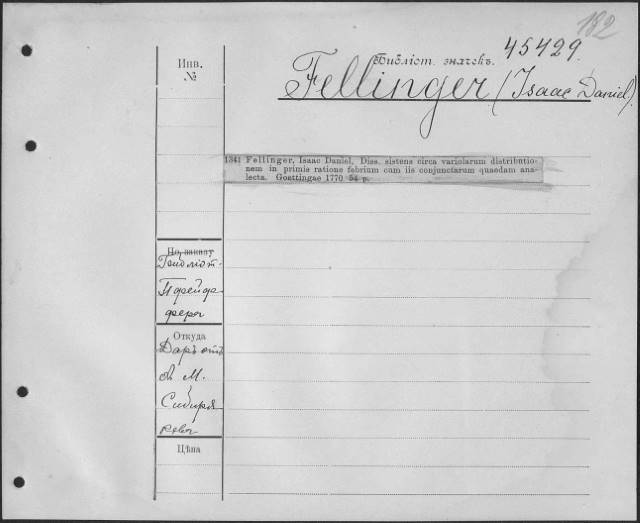 182
45429.
Инв.
№
Библіот. значекъ.
Fellinger (Isaac Daniel).
1341 Fellinger, Isaac Daniel, Diss. sistens circa variolarum distributio-
nem in primis ratione febrium cum iis conjunctarum quaedam ana-
lecta. Goettingae 1770 54 p.
По заказу
Библіот.
Пфейф
фера
Откуда
Даръ отъ
А М.
Сибиря
кова
Цѣна